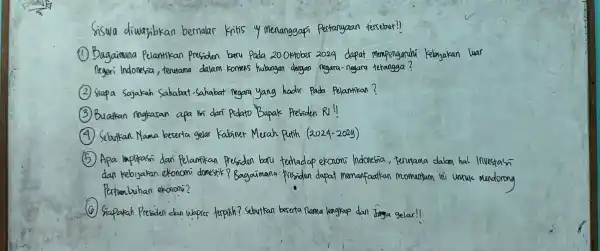 Siswa diwajibkan bernalar kritis y menanggapi Pertanyaan tersebut!!
① Bagaimana Pelantikan Presiden baru Pada 20 Oktober 2024 dapat mempengaruhi kebijakan luar
negeri Indonesia, terutama dalam konteks hubungan dengan negara-negara tetangga?
② Siapa Sajakah Sahabat-Sahabat negara yang hadir Pada Pelantikan?
③ Buatkan ringkasan apa isi dari Pidato Bapak Presiden RI!!
④ Sebutkan Nama beserta gelar Kabinet Merah Putih (2024-2029)
⑤ Apa implikasi dari Pelantikan Presiden baru terhadap ekonomi Indonesia, terutama dalam hal Investasi
dan kebijakan ekonomi domestik? Bagaimana Presiden dapat memanfaatkan momentum ini untuk mendorong
Pertumbuhan ekonomi?
⑥ Siapakah Presiden dan wapres terpilih? Sebutkan beserta nama lengkap dan Juga gelar!!